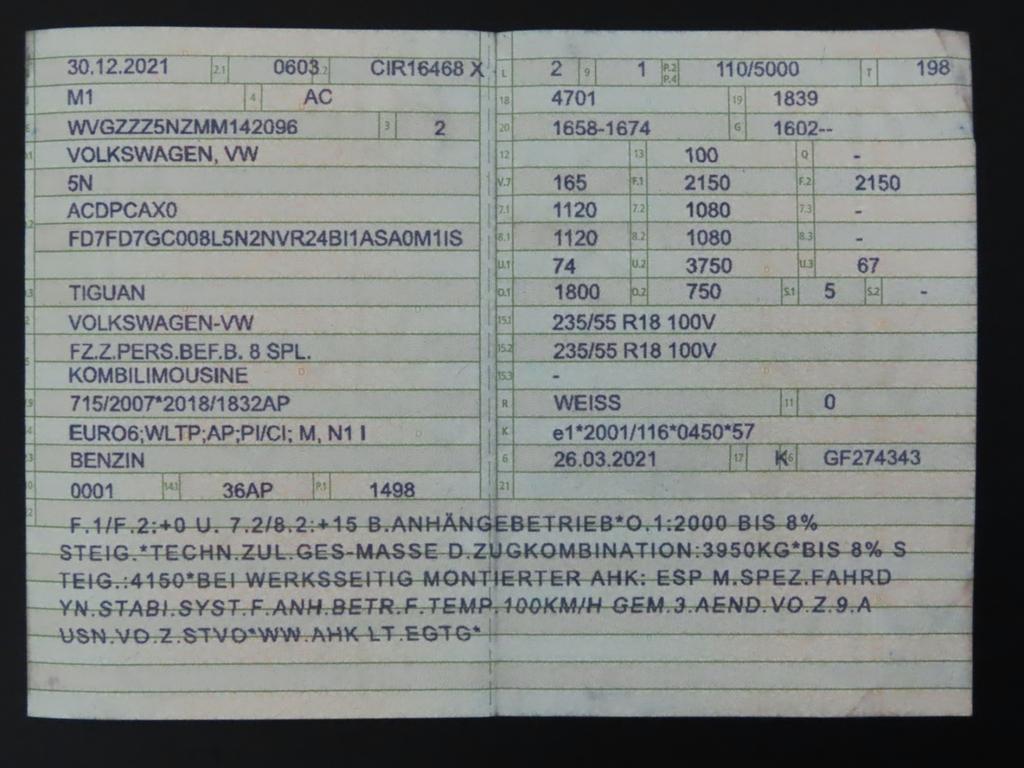 30.12.2021 2.1 0603 2.2 CIR16468 X
M1 4 AC
WVGZZZ5NZMM142096 3 2
VOLKSWAGEN, VW
5N
ACDPCAX0
FD7FD7GC008L5N2NVR24BI1ASA0M1IS
TIGUAN
VOLKSWAGEN-VW
FZ.Z.PERS.BEF.B. 8 SPL.
KOMBILIMOUSINE
715/2007*2018/1832AP
EURO6;WLTP;AP;PI/CI; M, N1 I
BENZIN
0001 14.1 36AP P.1 1498
L 2 9 1 P.2 P.4 110/5000 T 198
18 4701 19 1839
20 1658-1674 G 1602--
12 13 100 Q -
V.7 165 F.1 2150 F.2 2150
7.1 1120 7.2 1080 7.3 -
8.1 1120 8.2 1080 8.3 -
U.1 74 U.2 3750 U.3 67
O.1 1800 O.2 750 S.1 5 S.2 -
15.1 235/55 R18 100V
15.2 235/55 R18 100V
15.3 -
R WEISS 11 0
K e1*2001/116*0450*57
6 26.03.2021 17 K 16 GF274343
21
F.1/F.2:+0 U. 7.2/8.2:+15 B.ANHÄNGEBETRIEB*O.1:2000 BIS 8%
STEIG.*TECHN.ZUL.GES-MASSE D.ZUGKOMBINATION:3950KG*BIS 8% S
TEIG.:4150*BEI WERKSSEITIG MONTIERTER AHK: ESP M.SPEZ.FAHRD
YN.STABI.SYST.F.ANH.BETR.F.TEMP.100KM/H GEM.3.AEND.VO.Z.9.A
USN.VO.Z.STVO*WW.AHK LT.EGTG*